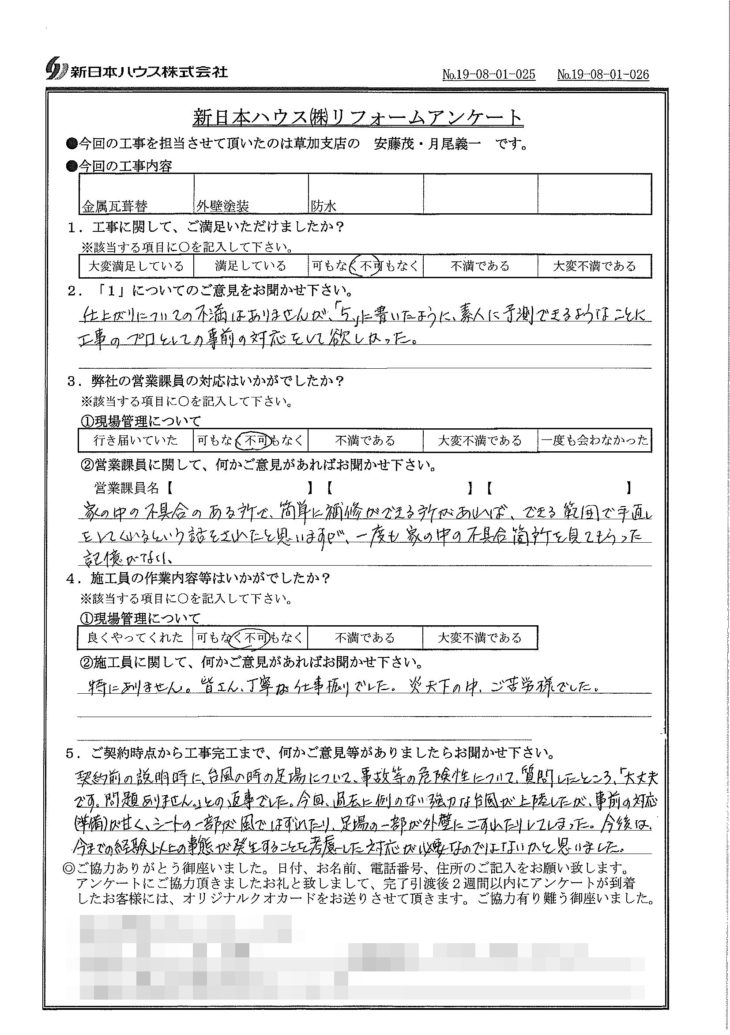 新日本ハウス株式会社 №19-08-01-025 №19-08-01-026
新日本ハウス㈱リフォームアンケート
●今回の工事を担当させて頂いたのは草加支店の 安藤茂・月尾義一 です。
●今回の工事内容
金属瓦葺替 外壁塗装 防水
1．工事に関して、ご満足いただけましたか？
※該当する項目に○を記入して下さい。
大変満足している 満足している 可もなく不可もなく 不満である 大変不満である
2．「1」についてのご意見をお聞かせ下さい。
仕上がりについての不満はありませんが、「5」に書いたように、素人に予測できるようなことに
工事のプロとしての事前の対応をして欲しかった。
3．弊社の営業課員の対応はいかがでしたか？
※該当する項目に○を記入して下さい。
①現場管理について
行き届いていた 可もなく不可もなく 不満である 大変不満である 一度も会わなかった
②営業課員に関して、何かご意見があればお聞かせ下さい。
営業課員名【 】【 】【 】
家の中の不具合のある所で、簡単に補修ができる所があれば、できる範囲で手直し
をしてくれるという話をされたと思いますが、一度も家の中の不具合箇所を見てもらった
記憶がない。
4．施工員の作業内容等はいかがでしたか？
※該当する項目に○を記入して下さい。
①現場管理について
良くやってくれた 可もなく不可もなく 不満である 大変不満である
②施工員に関して、何かご意見があればお聞かせ下さい。
特にありません。皆さん、丁寧な仕事振りでした。炎天下の中、ご苦労様でした。
5．ご契約時点から工事完工まで、何かご意見等がありましたらお聞かせ下さい。
契約前の説明時に、台風の時の足場について、事故等の危険性について、質問したところ、「大丈夫
です。問題ありません。」との返事でした。今回、過去に例のない強力な台風が上陸したが、事前の対応
(準備)が甘く、シートの一部が風ではずれたり、足場の一部が外壁にこすれたりしてしまった。今後は、
今までの経験以上の事態が発生することを考慮した対応が必要なのではないかと思いました。
◎ご協力ありがとう御座いました。日付、お名前、電話番号、住所のご記入をお願い致します。
アンケートにご協力頂きましたお礼と致しまして、完了引渡後2週間以内にアンケートが到着
したお客様には、オリジナルクオカードをお送りさせて頂きます。ご協力有り難う御座いました。